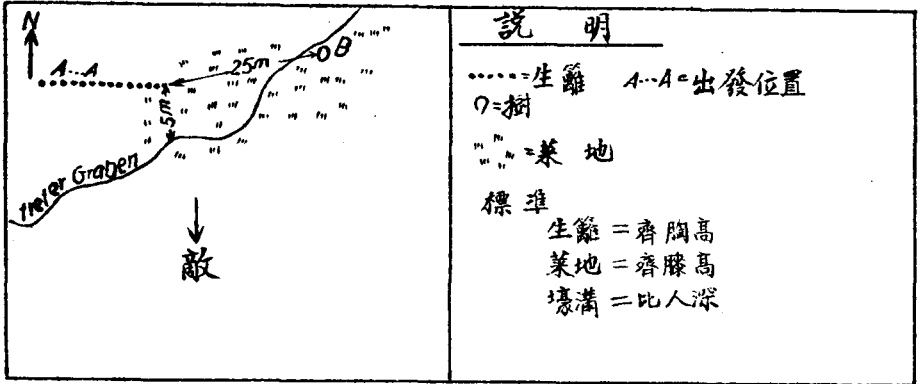 N
A...A
25m
B
5m
tiefer Graben
敵
説 明
......=生籬 A...A=出發位置
=樹
=菜 地
標 準
生籬=齊胸高
菜地=齊膝高
壕溝=比人深